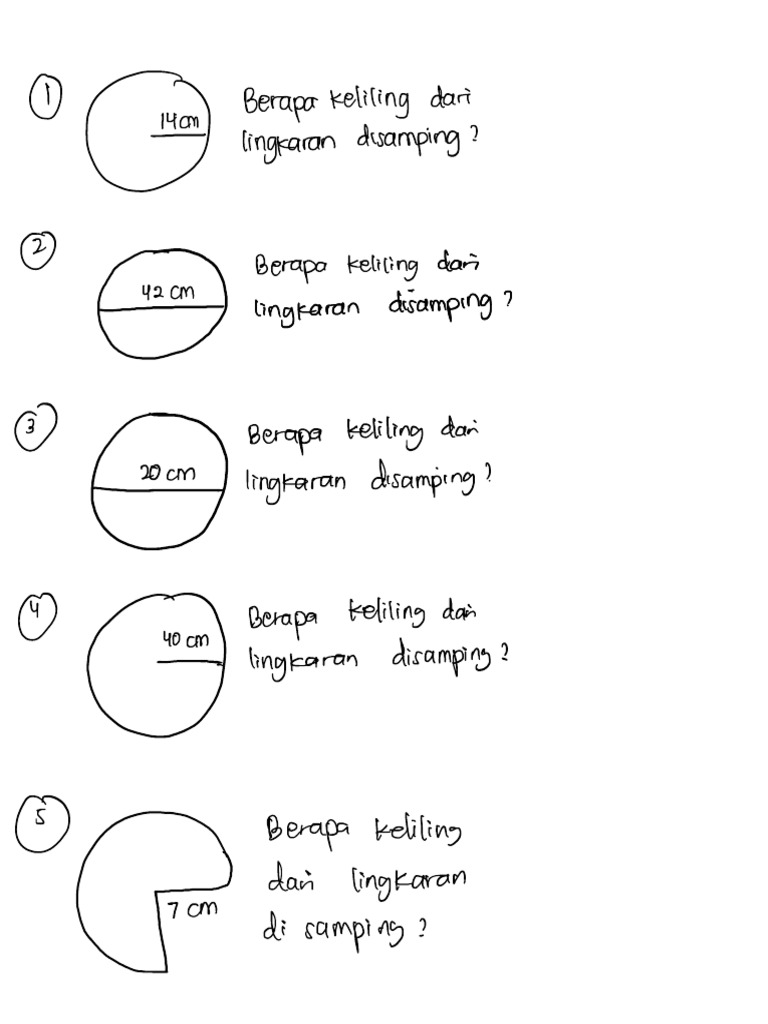 1
14 cm
Berapa keliling dari
lingkaran disamping?
2
42 cm
Berapa keliling dari
lingkaran disamping?
3
20 cm
Berapa keliling dari
lingkaran disamping?
4
40 cm
Berapa keliling dari
lingkaran disamping?
5
7 cm
Berapa keliling
dari lingkaran
di samping?